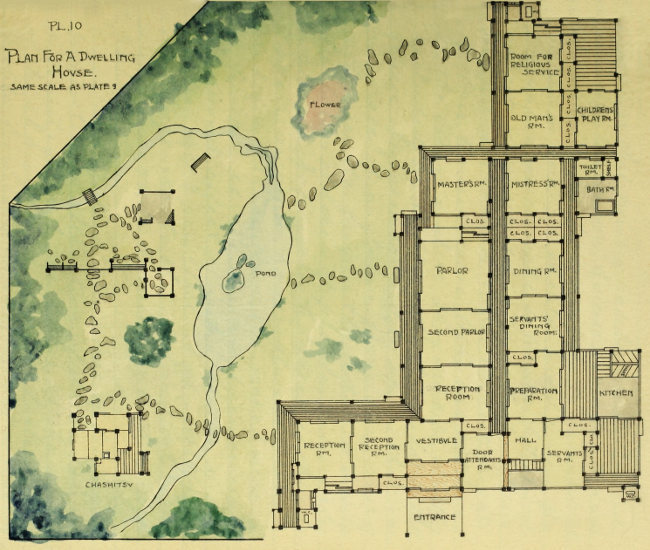 PL.10
PLAN FOR A DWELLING
HOUSE.
SAME SCALE AS PLATE 9
FLOWER
POND
CHASHITSU
ROOM FOR
RELIGIOUS
SERVICE
CLOS.
CLOS.
OLD MAN'S
RM.
CLOS.
CHILDREN'S
PLAY RM.
MASTER'S RM.
MISTRESS' RM.
TOILET
RM.
SHELF
BATH RM.
CLOS.
CLOS.
CLOS.
CLOS.
CLOS.
PARLOR
DINING RM.
SECOND PARLOR
SERVANTS'
DINING
ROOM.
CLOS.
RECEPTION
ROOM
PREPARATION
RM.
KITCHEN
CLOS.
CLOS.
RECEPTION
RM.
SECOND
RECEPTION
RM.
VESTIBULE
DOOR
ATTENDANTS
RM.
HALL
SERVANTS'
RM.
CLOS.
CLOS.
ENTRANCE